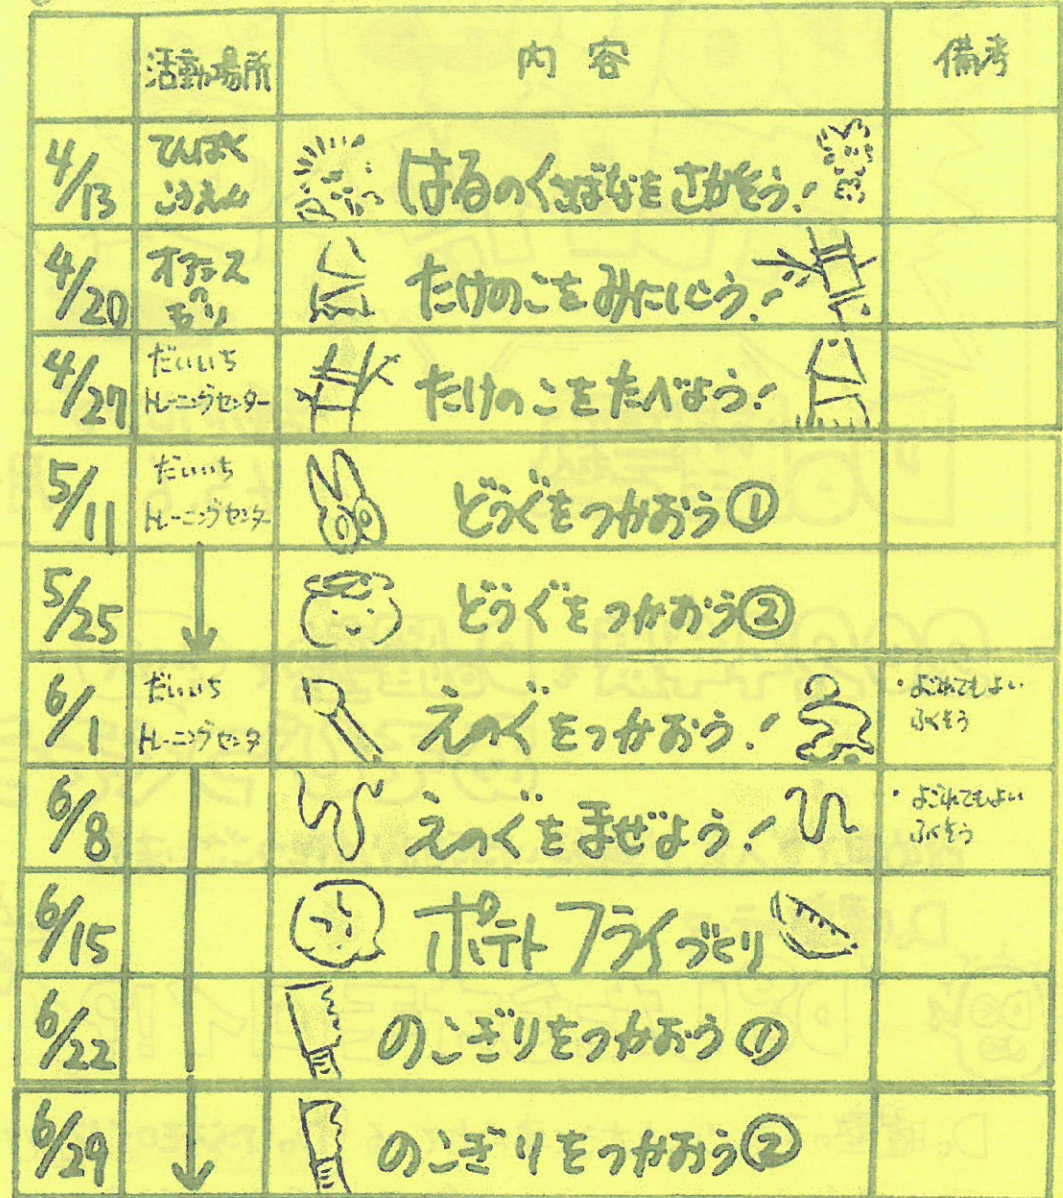 活動場所 内容 備考
4/13 てんぱく
こうえん はるのくさばなをさがそう!
4/20 オアシス
の森 たけのこをみにいこう!
4/27 だいいち
トレーニングセンター たけのこをたべよう!
5/11 だいいち
トレーニングセンター どうぐをつかおう①
5/25 どうぐをつかおう②
6/1 だいいち
トレーニングセンタ えのぐをつかおう! ・よごれてもよい
ふくそう
6/8 えのぐをまぜよう! ・よごれてもよい
ふくそう
6/15 ポテトフライづくり
6/22 のこぎりをつかおう①
6/29 のこぎりをつかおう②